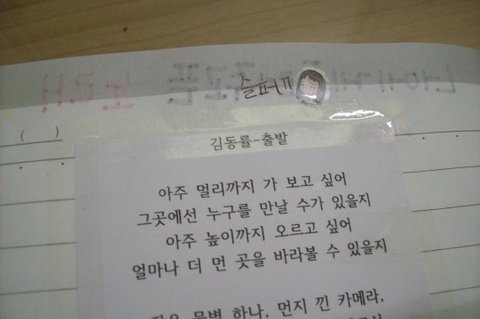 슬퍼ㄲ
(    )
김동률-출발
아주 멀리까지 가 보고 싶어
그곳에선 누구를 만날 수가 있을지
아주 높이까지 오르고 싶어
얼마나 더 먼 곳을 바라볼 수 있을지
작은 물병 하나, 먼지 낀 카메라,